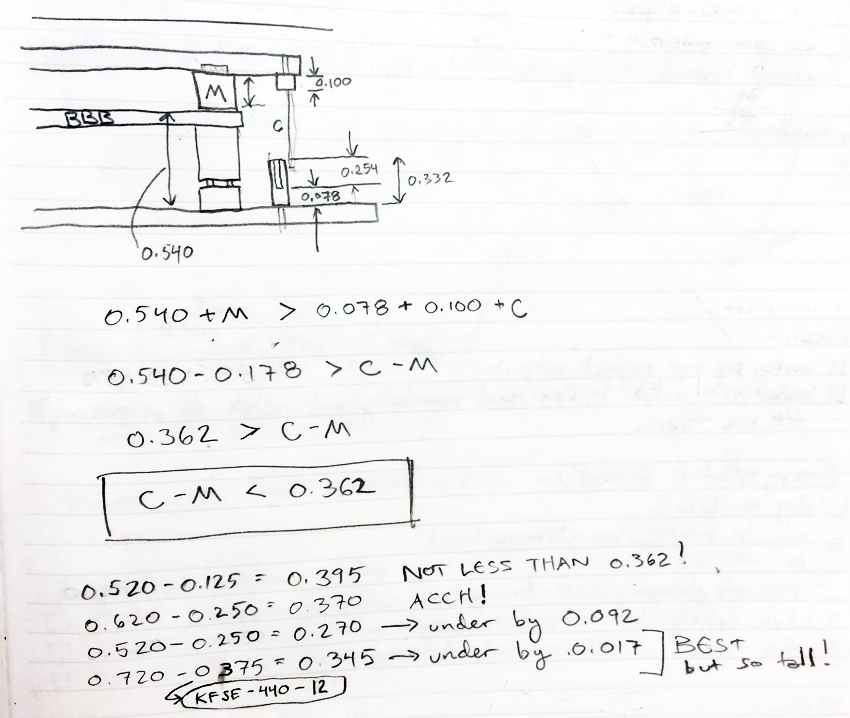 M
0.100
BBB
C
0.254
0.332
0.078
0.540
0.540 + M > 0.078 + 0.100 + C
0.540 - 0.178 > C - M
0.362 > C - M
C - M < 0.362
0.520 - 0.125 = 0.395 NOT LESS THAN 0.362!
0.620 - 0.250 = 0.370 ACCH!
0.520 - 0.250 = 0.270 → under by 0.092
0.720 - 0.375 = 0.345 → under by 0.017 BEST
but so tall!
KFSE-440-12